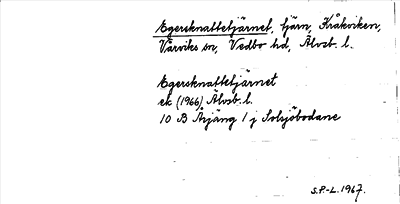 Egersknattetjärnet, tjärn, Kråkviken,
Vårviks sn, Vedbo hd, Älvsb. l.
Egersknattetjärnet
ek (1966) Älvsb. l.
10 B Årjäng 1 j Solsjöbodane
S.P.-L. 1967.